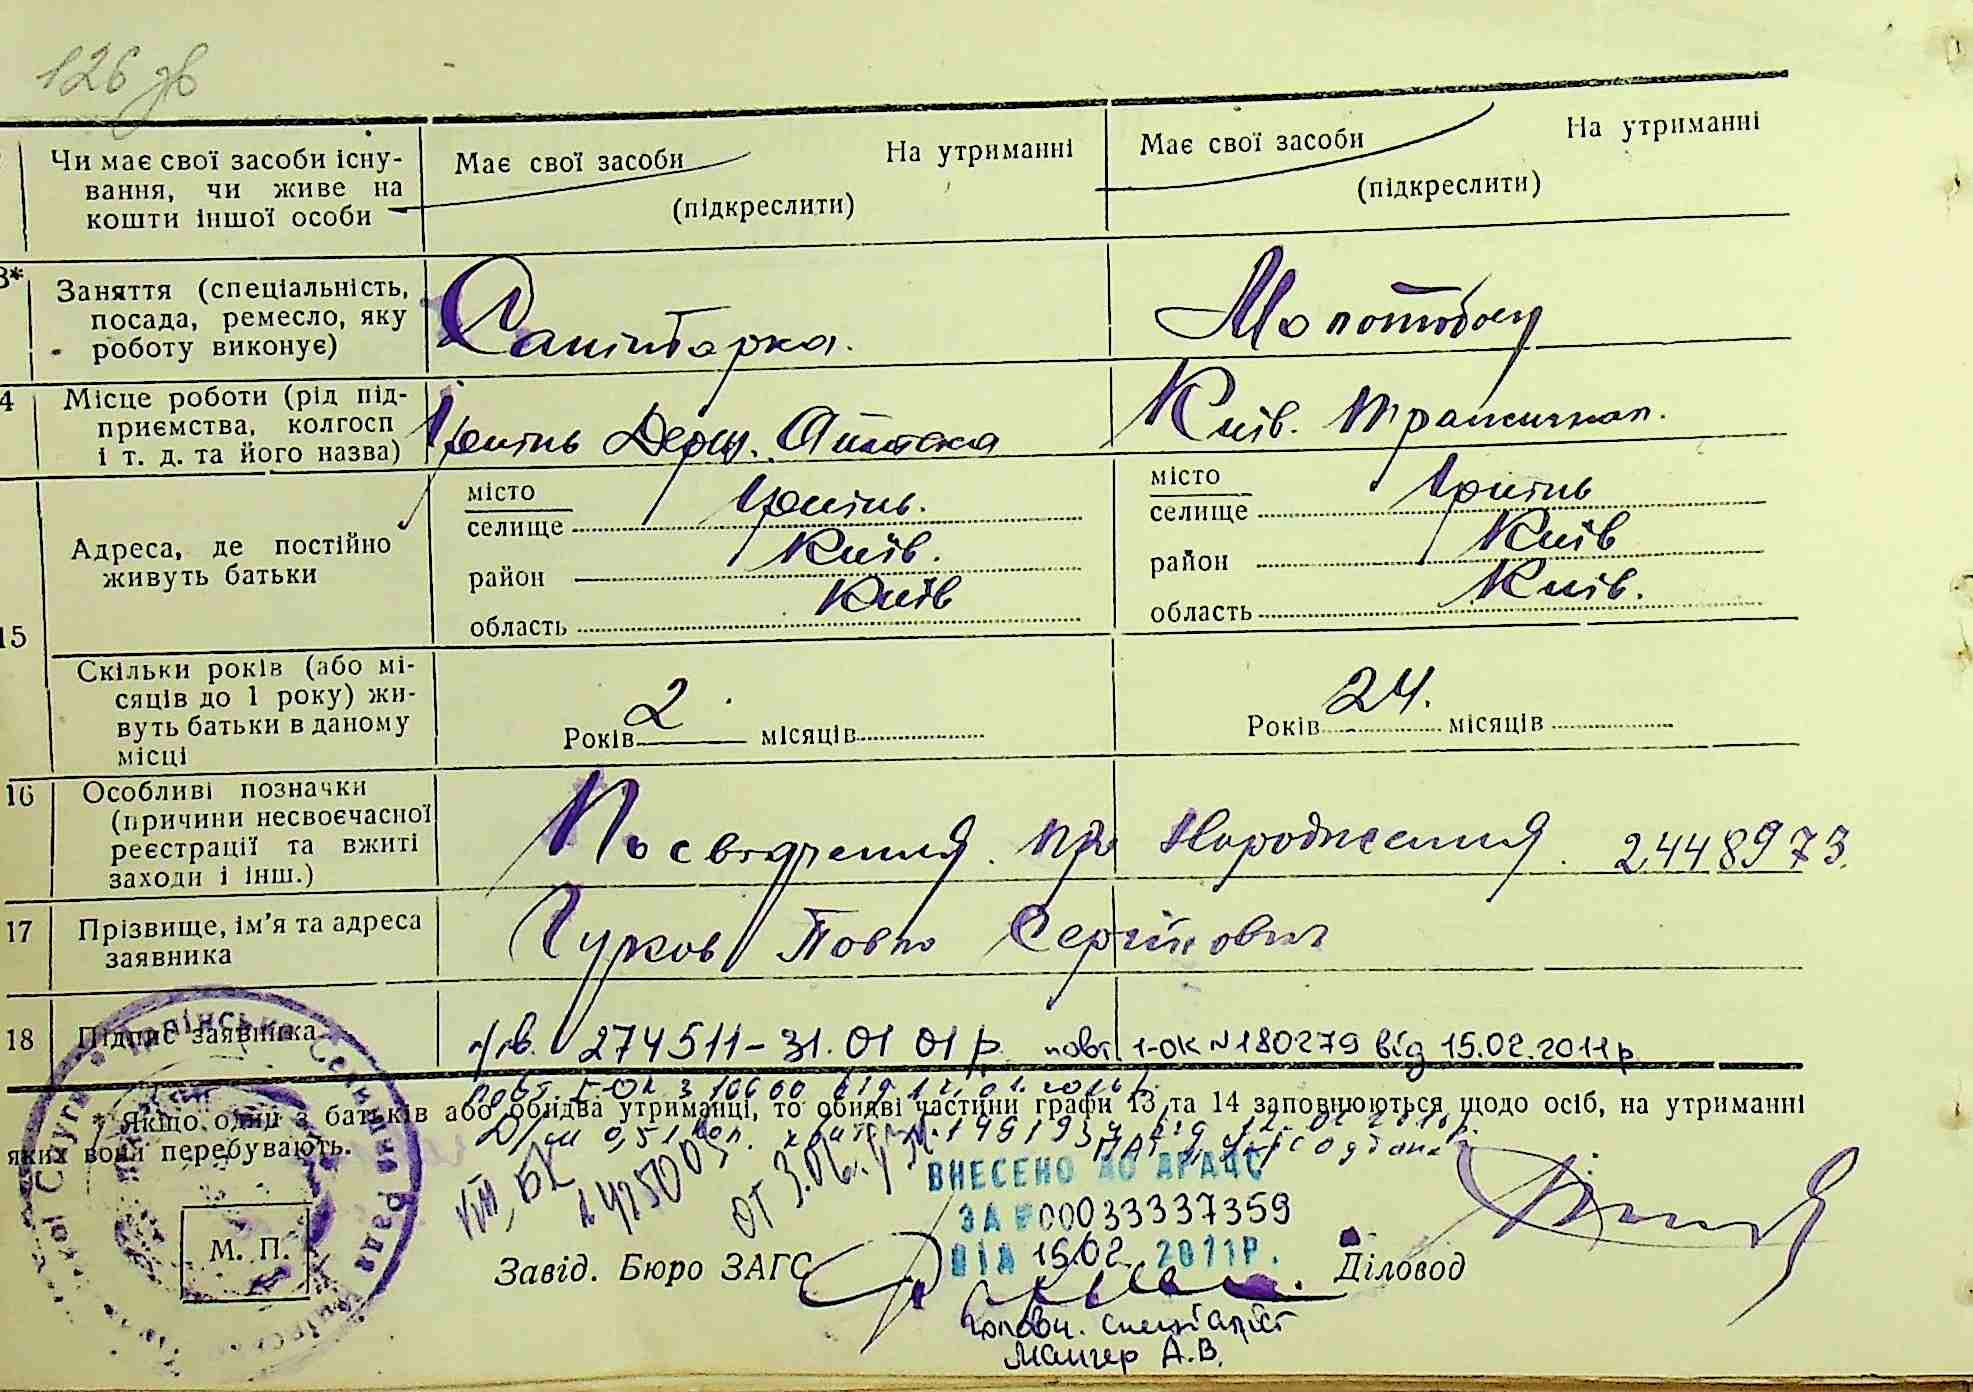 126 зв
Чи має свої засоби існу-
вання, чи живе на
кошти іншої особи
Має свої засоби На утриманні
(підкреслити)
Має свої засоби На утриманні
(підкреслити)
3*
Заняття (спеціальність,
посада, ремесло, яку
роботу виконує)
Санітарка.
Молотобоец
4
Місце роботи (рід під-
приємства, колгосп
і т. д. та його назва)
Ірпінь Держ. Аптека
Київ.
15
Адреса, де постійно
живуть батьки
місто
селище Ірпінь.
район Київ.
область Київ
місто
селище Ірпінь
район Київ
область Київ.
Скільки років (або мі-
сяців до 1 року) жи-
вуть батьки в даному
місці
Років 2 місяців
Років 24. місяців
16
Особливі позначки
(причини несвоєчасної
реєстрації та вжиті
заходи і інш.)
Посвідчення про Народження. 2448973.
17
Прізвище, ім'я та адреса
заявника
Гурков Павло Сергійович
18
Підпис заявника
274511-31.01 01 р. повт 1-ОК №180279 від 15.02.2011р
* Якщо один з батьків або обидва утриманці, то обидві частини графи 13 та 14 заповнюються щодо осіб, на утриманні
яких вони перебувають.
ВНЕСЕНО ДО АРАЦС
ЗА №00033337359
ВІД 15.02. 2011Р.
М. П.
Завід. Бюро ЗАГС
Діловод
Головн. спеціаліст
Мангер А.В.